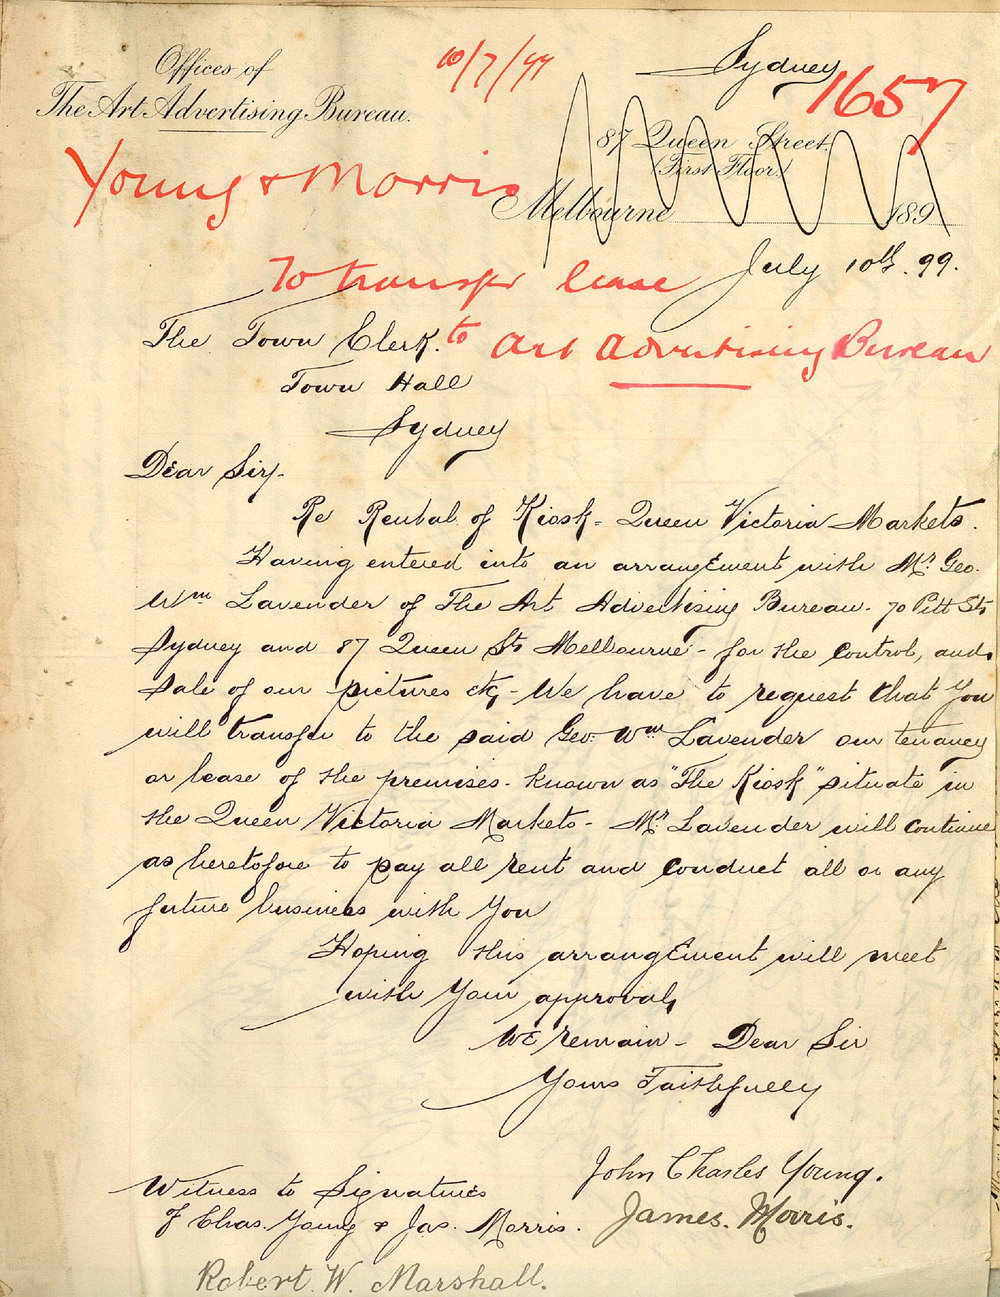 Offices of
The Art Advertising Bureau.
10/7/99
Sydney
1657
87 Queen Street
(First Floor)
Melbourne 189
Young & Morris
To transfer lease
to Art Advertising Bureau
July 10th. 99.
The Town Clerk.
Town Hall
Sydney
Dear Sir,
Re Rental of Kiosk - Queen Victoria Markets.
Having entered into an arrangement with Mr. Geo.
Wm Lavender of The Art Advertising Bureau. 70 Pitt St.
Sydney and 87 Queen St. Melbourne - for the control, and
sale of our pictures etc, - We have to request that You
will transfer to the said Geo. Wm Lavender our tenancy
or lease of the premises - known as "The Kiosk" situate in
the Queen Victoria Markets - Mr Lavender will continue
as heretofore to pay all rent and conduct all or any
future business with You
Hoping this arrangement will meet
with Your approval,
We remain - Dear Sir
Yours Faithfully
John Charles Young.
James. Morris.
Witness to Signatures
of Chas. Young & Jas. Morris.
Robert. W. Marshall.